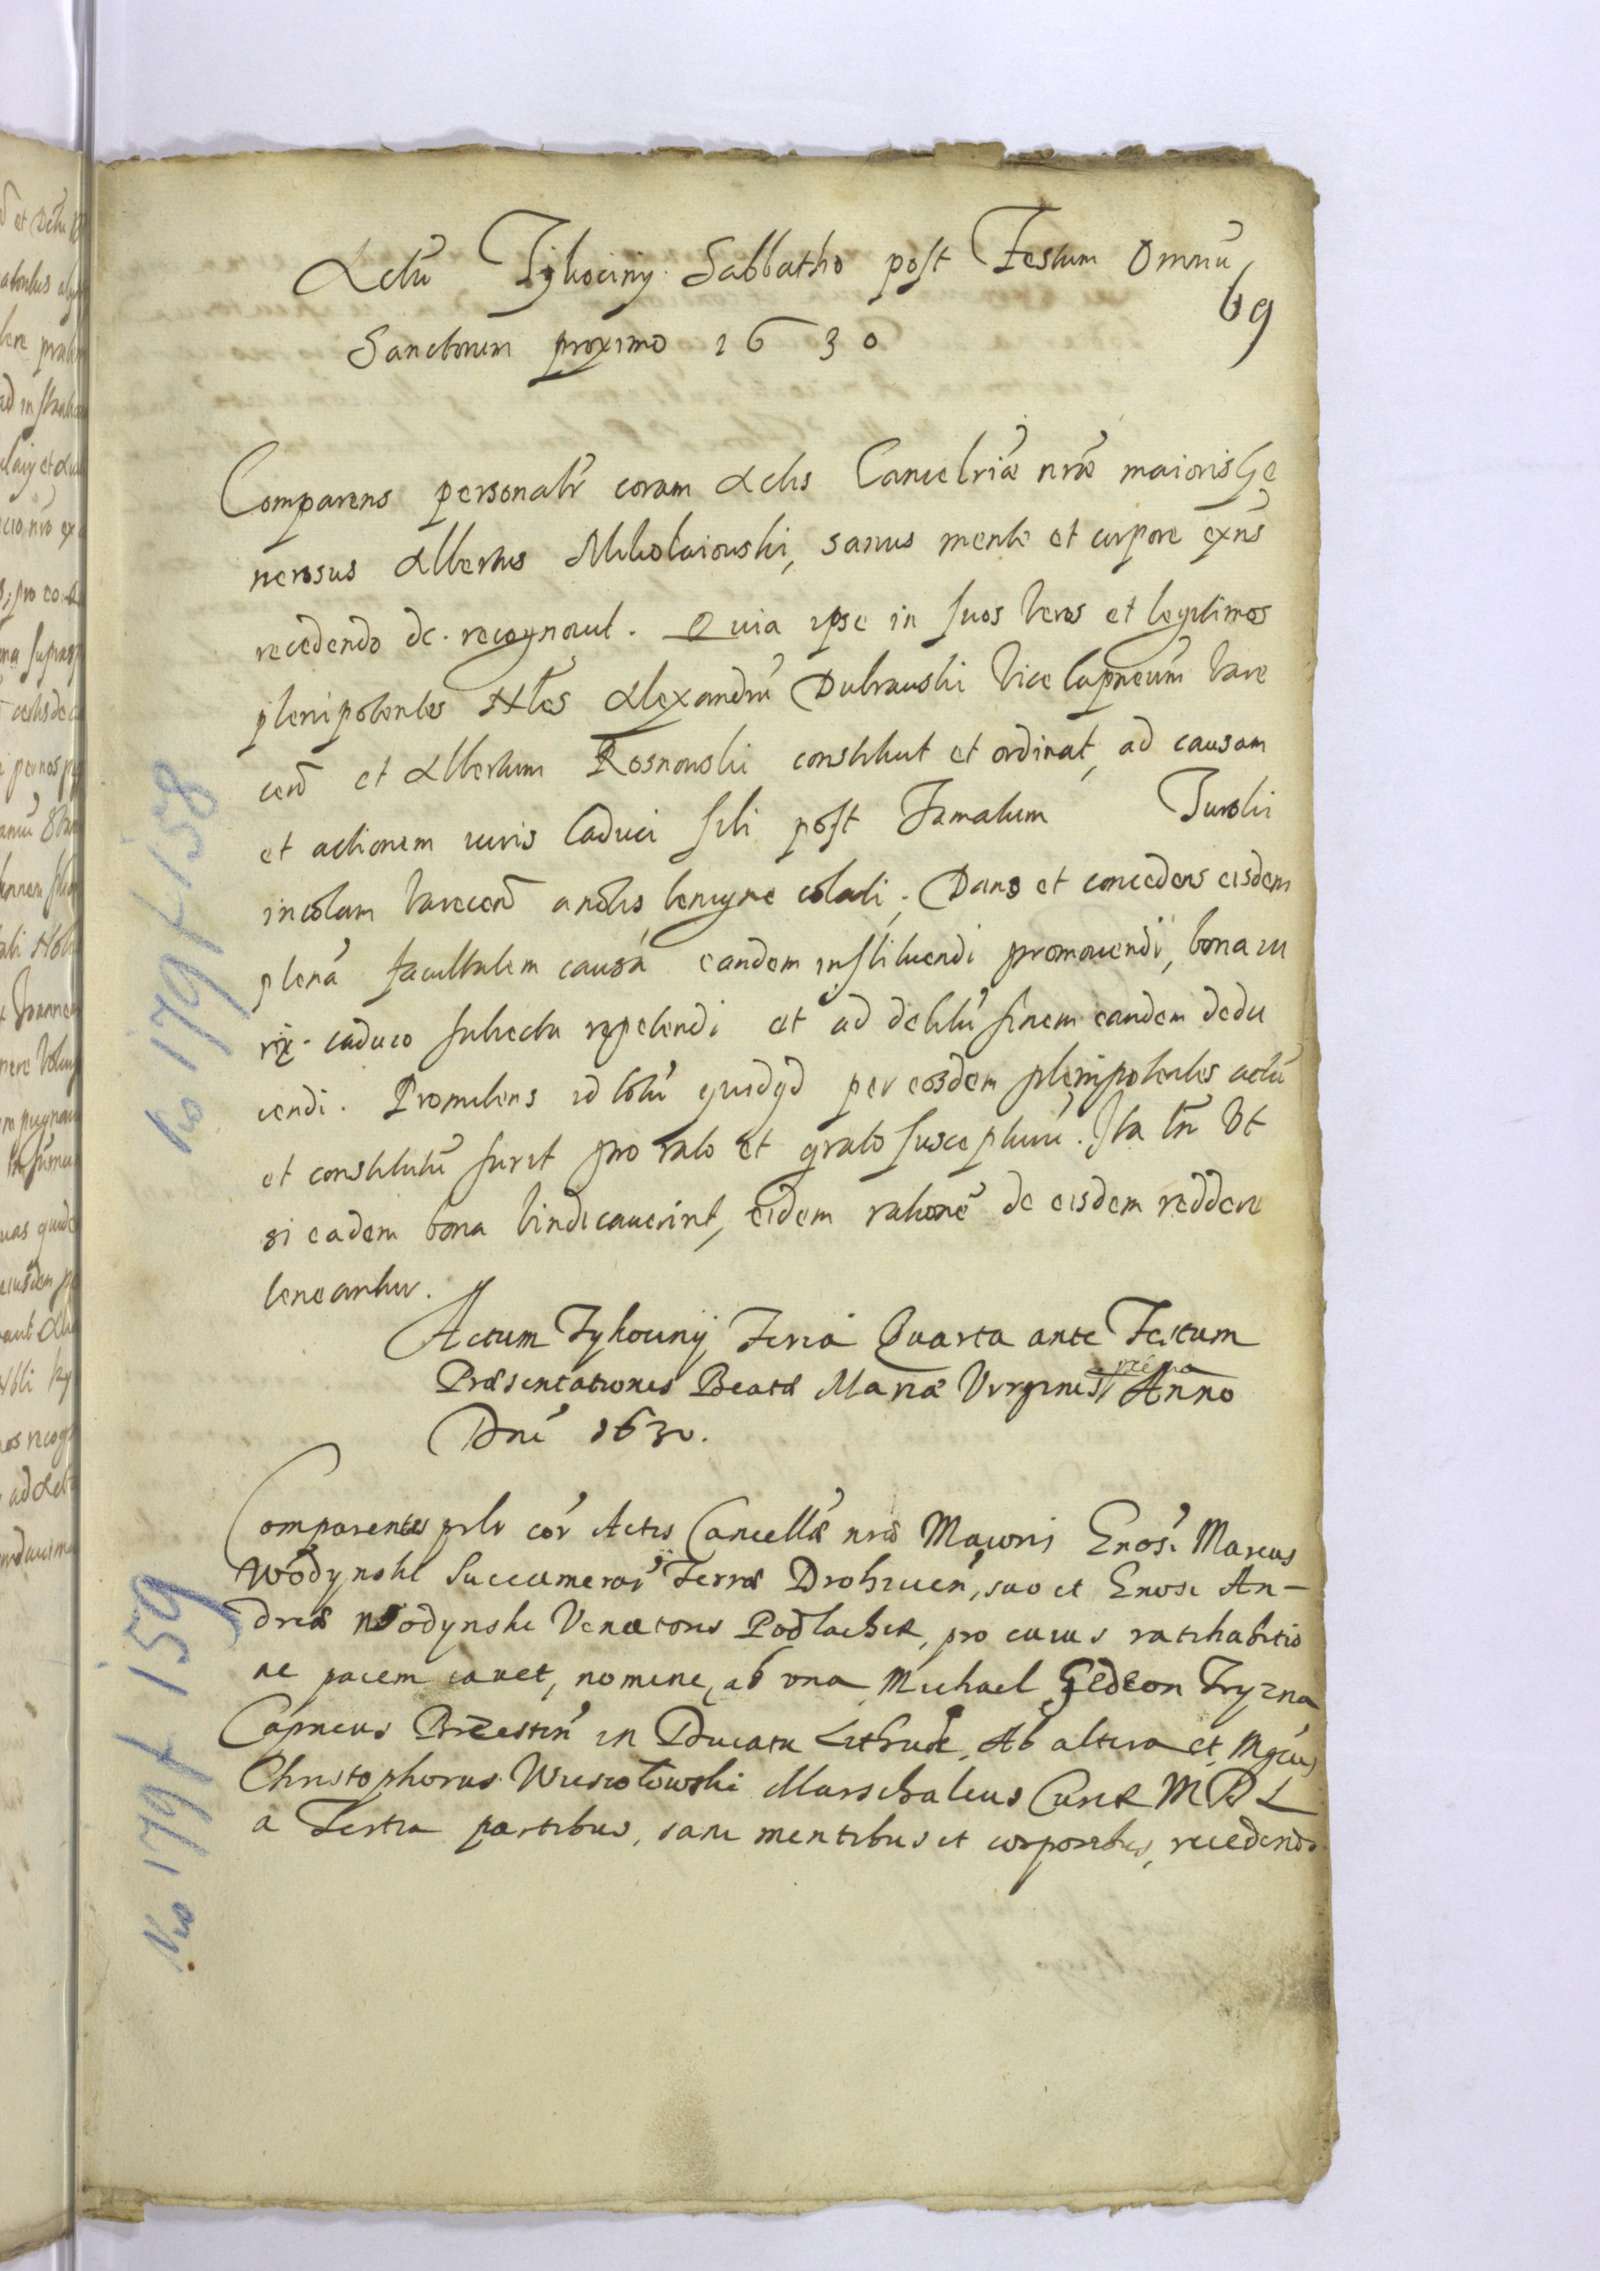 Actū Tijkociny Sabbatho post Festum Omniū
69
Sanctorum proximo 1630
Comparens personalr̄ coram Actis Cancelriæ nr̄æ maioris Ge
nerosus Albertus Mikolaiouski, sanus mente et corpore exn̄s
recedendo dc. recognouit. Quia ipse in suos veros et legitimos
plenipotentes Nbles Alexandrū Dubrauski Vice Capneum Vare
cen̄ et Albertum Rosnouski constituit et ordinat, ad causam
et actionem iuris Caduci sibi post Famatum Turski
incolam Varecen̄ a nobis benigne colati. Dans et concedens eisdem
plenā facultatem causā eandem instituendi promouendi, bona iu
ri caduco subiecta repetendi et ad debitū finem eandem dedu
cendi. Promittens id totū quidqd per eosdem plenipotentes actū
et constitutū fuerit pro rato et grato suscepturū. Ita tn̄ Vt
si eadem bona vindicauerint, eidem rationē de eisdem reddere
teneantur.
Actum Tykociny Feria Quarta ante Festum
Præsentationis Beatæ Mariæ Virginis Anno
Dn̄i 1630.
Comparentes prlr cor̄ Actis Cancellæ nr̄æ Maioris Gnosi Marcus
Wodynski Succamerar̄ Terræ Drohicien̄, suo et Gnosi An-
dreæ Wodynski Venatoris Podlachiæ, pro cuius ratihabitio
ne pacem cauet, nomine, ab vna Michael Gedeon Tryzna
Capneus Brzestin̄ in Ducatu Lithuae, Ab altera et Mgcus
Christophorus Wiesiolowski Marschalcus Curiæ M D L
a Tertia partibus, sani mentibus et corporibus, recedendo
No 179f 158
No 179f 159